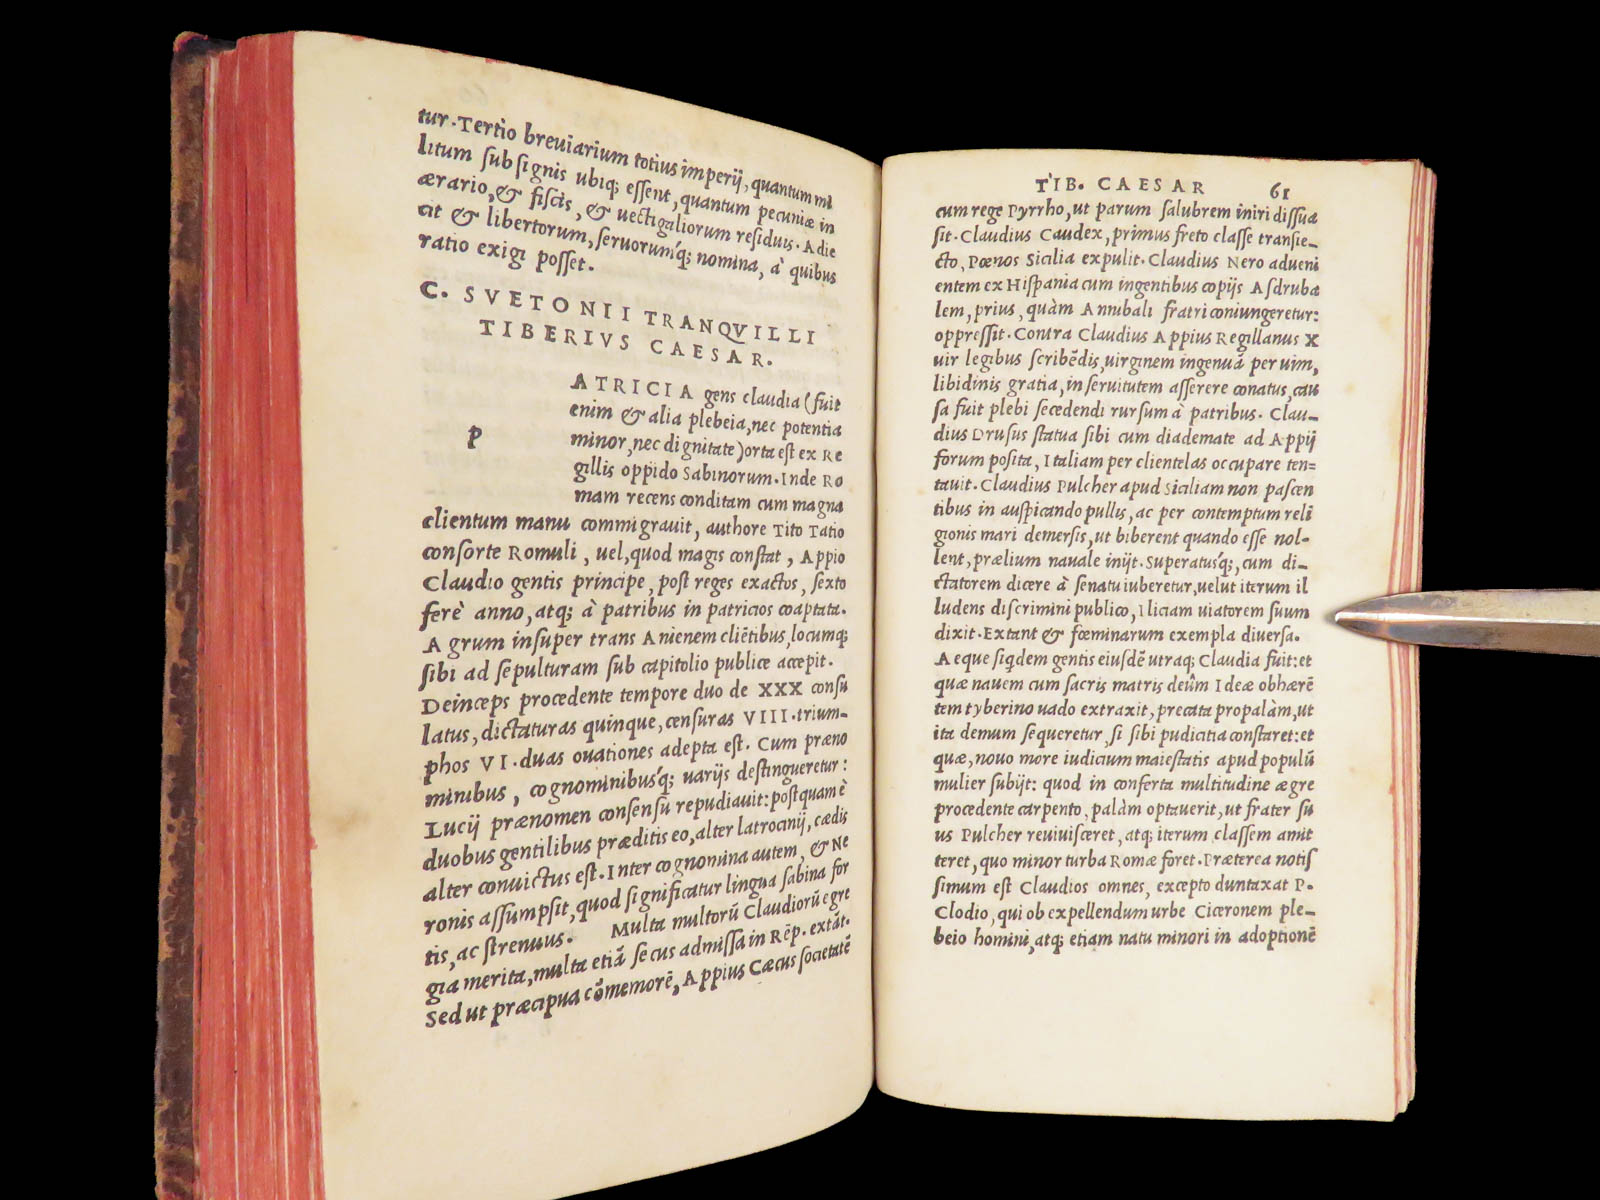 tur. Tertio breviarium totius imperij, quantum mi
litum sub signis ubiq; essent, quantum pecuniæ in
ærario, & fiscis, & uectigaliorum residuis. Adie
cit & libertorum, seruorumq́; nomina, à quibus
ratio exigi posset.
C. SVETONII TRANQVILLI
TIBERIVS CAESAR.
P
ATRICIA gens claudia (fuit
enim & alia plebeia, nec potentia
minor, nec dignitate) orta est ex Re
gillis oppido Sabinorum. Inde Ro
mam recens conditam cum magna
clientum manu commigrauit, authore Tito Tatio
consorte Romuli, uel, quod magis constat, Appio
Claudio gentis principe, post reges exactos, sexto
ferè anno, atq; à patribus in patricios coaptata.
Agrum insuper trans Anienem cliẽtibus, locumq;
sibi ad sepulturam sub capitolio publice accepit.
Deinceps procedente tempore duo de XXX consu
latus, dictaturas quinque, censuras VIII. trium-
phos VI. duas ouationes adepta est. Cum præno
minibus, cognominibusq́; uarijs destingueretur:
Lucij prænomen consensu repudiauit: postquam è
duobus gentilibus præditis eo, alter latrocinij, cædis
alter conuictus est. Inter cognomina autem, & Ne
ronis assumpsit, quod significatur lingua sabina for
tis, ac strenuus. Multa multorũ Claudiorũ egre
gia merita, multa etiã secus admissa in Rẽp. extãt.
Sed ut præcipua cõmemorẽ, Appius Cæcus societatẽ
TIB. CAESAR 61
cum rege Pyrrho, ut parum salubrem iniri dissua
sit. Claudius Caudex, primus freto classe transie-
cto, Pœnos Sicilia expulit. Claudius Nero adueni
entem ex Hispania cum ingentibus copijs Asdruba
lem, prius, quàm Annibali fratri coniungeretur:
oppressit. Contra Claudius Appius Regillanus X
uir legibus scribẽdis, uirginem ingenuã per uim,
libidinis gratia, in seruitutem asserere conatus, cau
sa fuit plebi secedendi rursum à patribus. Clau-
dius Drusus statua sibi cum diademate ad Appij
forum posita, Italiam per clientelas occupare ten=
tauit. Claudius Pulcher apud Siciliam non pascen
tibus in auspicando pullis, ac per contemptum reli
gionis mari demersis, ut biberent quando esse nol-
lent, prælium nauale inijt. Superatusq́;, cum di-
ctatorem dicere à senatu iuberetur, uelut iterum il
ludens discrimini publico, Iliciam uiatorem suum
dixit. Extant & fœminarum exempla diuersa.
Aeque siqdem gentis eiusdẽ utraq; Claudia fuit: et
quæ nauem cum sacris matris deûm Ideæ obhærẽ
tem tyberino uado extraxit, precata propalàm, ut
ita demum sequeretur, si sibi pudicitia constaret: et
quæ, nouo more iudicium maiestatis apud populũ
mulier subijt: quod in conferta multitudine ægre
procedente carpento, palàm optauerit, ut frater su
us Pulcher reuiuisceret, atq; iterum classem amit
teret, quo minor turba Romæ foret. Præterea notis
simum est Claudios omnes, excepto duntaxat P.
Clodio, qui ob expellendum urbe Ciceronem ple-
beio homini, atq; etiam natu minori in adoptionẽ